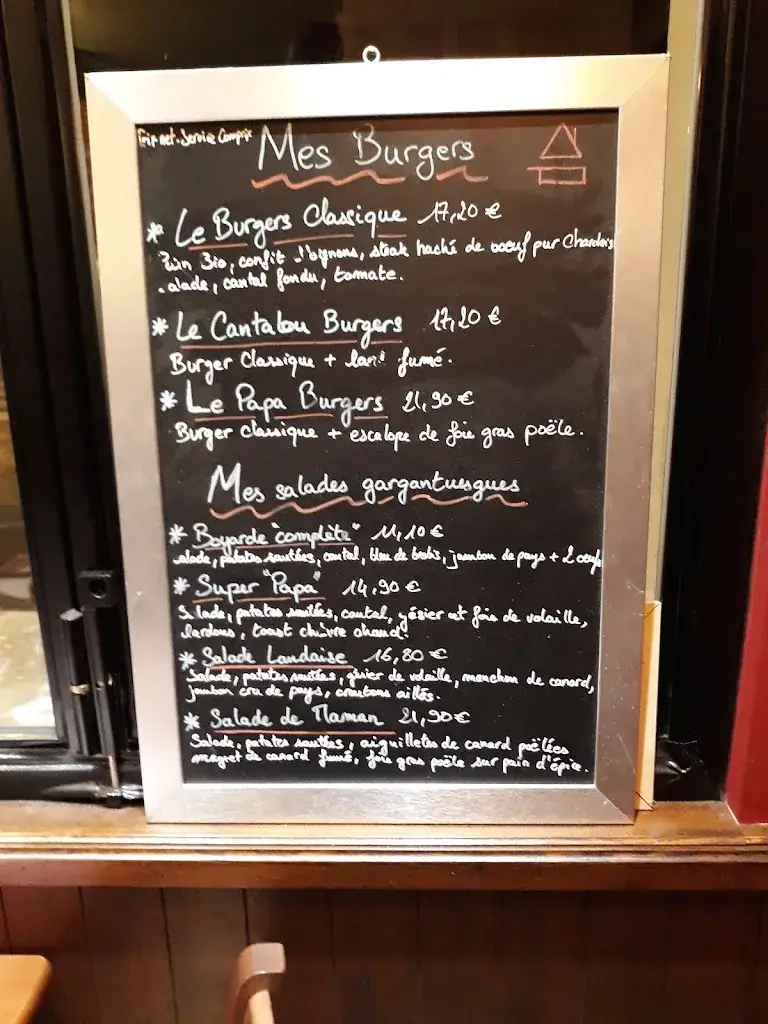 Prix net. Service Compris
Mes Burgers
* Le Burgers Classique 17,20 €
Pain Bio, confit d'oignons, steak haché de oeuf pur Charolais
salade, cantal fondu, tomate.
* Le Cantalou Burgers 17,20 €
Burger Classique + lard fumé.
* Le Papa Burgers 21,90 €
Burger classique + escalope de foie gras poële.
Mes salades gargantuesques
* Boyarde "complète" 11,10 €
salade, patates sautées, cantal, bleu de brebis, jambon de pays + 2 oeufs
* Super "Papa" 14,90 €
Salade, patates sautées, cantal, gésier et fois de volaille,
lardons, toast chèvre chaud.
* Salade Landaise 16,80 €
Salade, patates sautées, gésier de volaille, manchon de canard,
jambon cru de pays, croutons aillés.
* Salade de Maman 21,90 €
Salade, patates sautées, aiguilletes de canard poëlées
magret de canard fumé, foie gras poële sur pain d'épice.